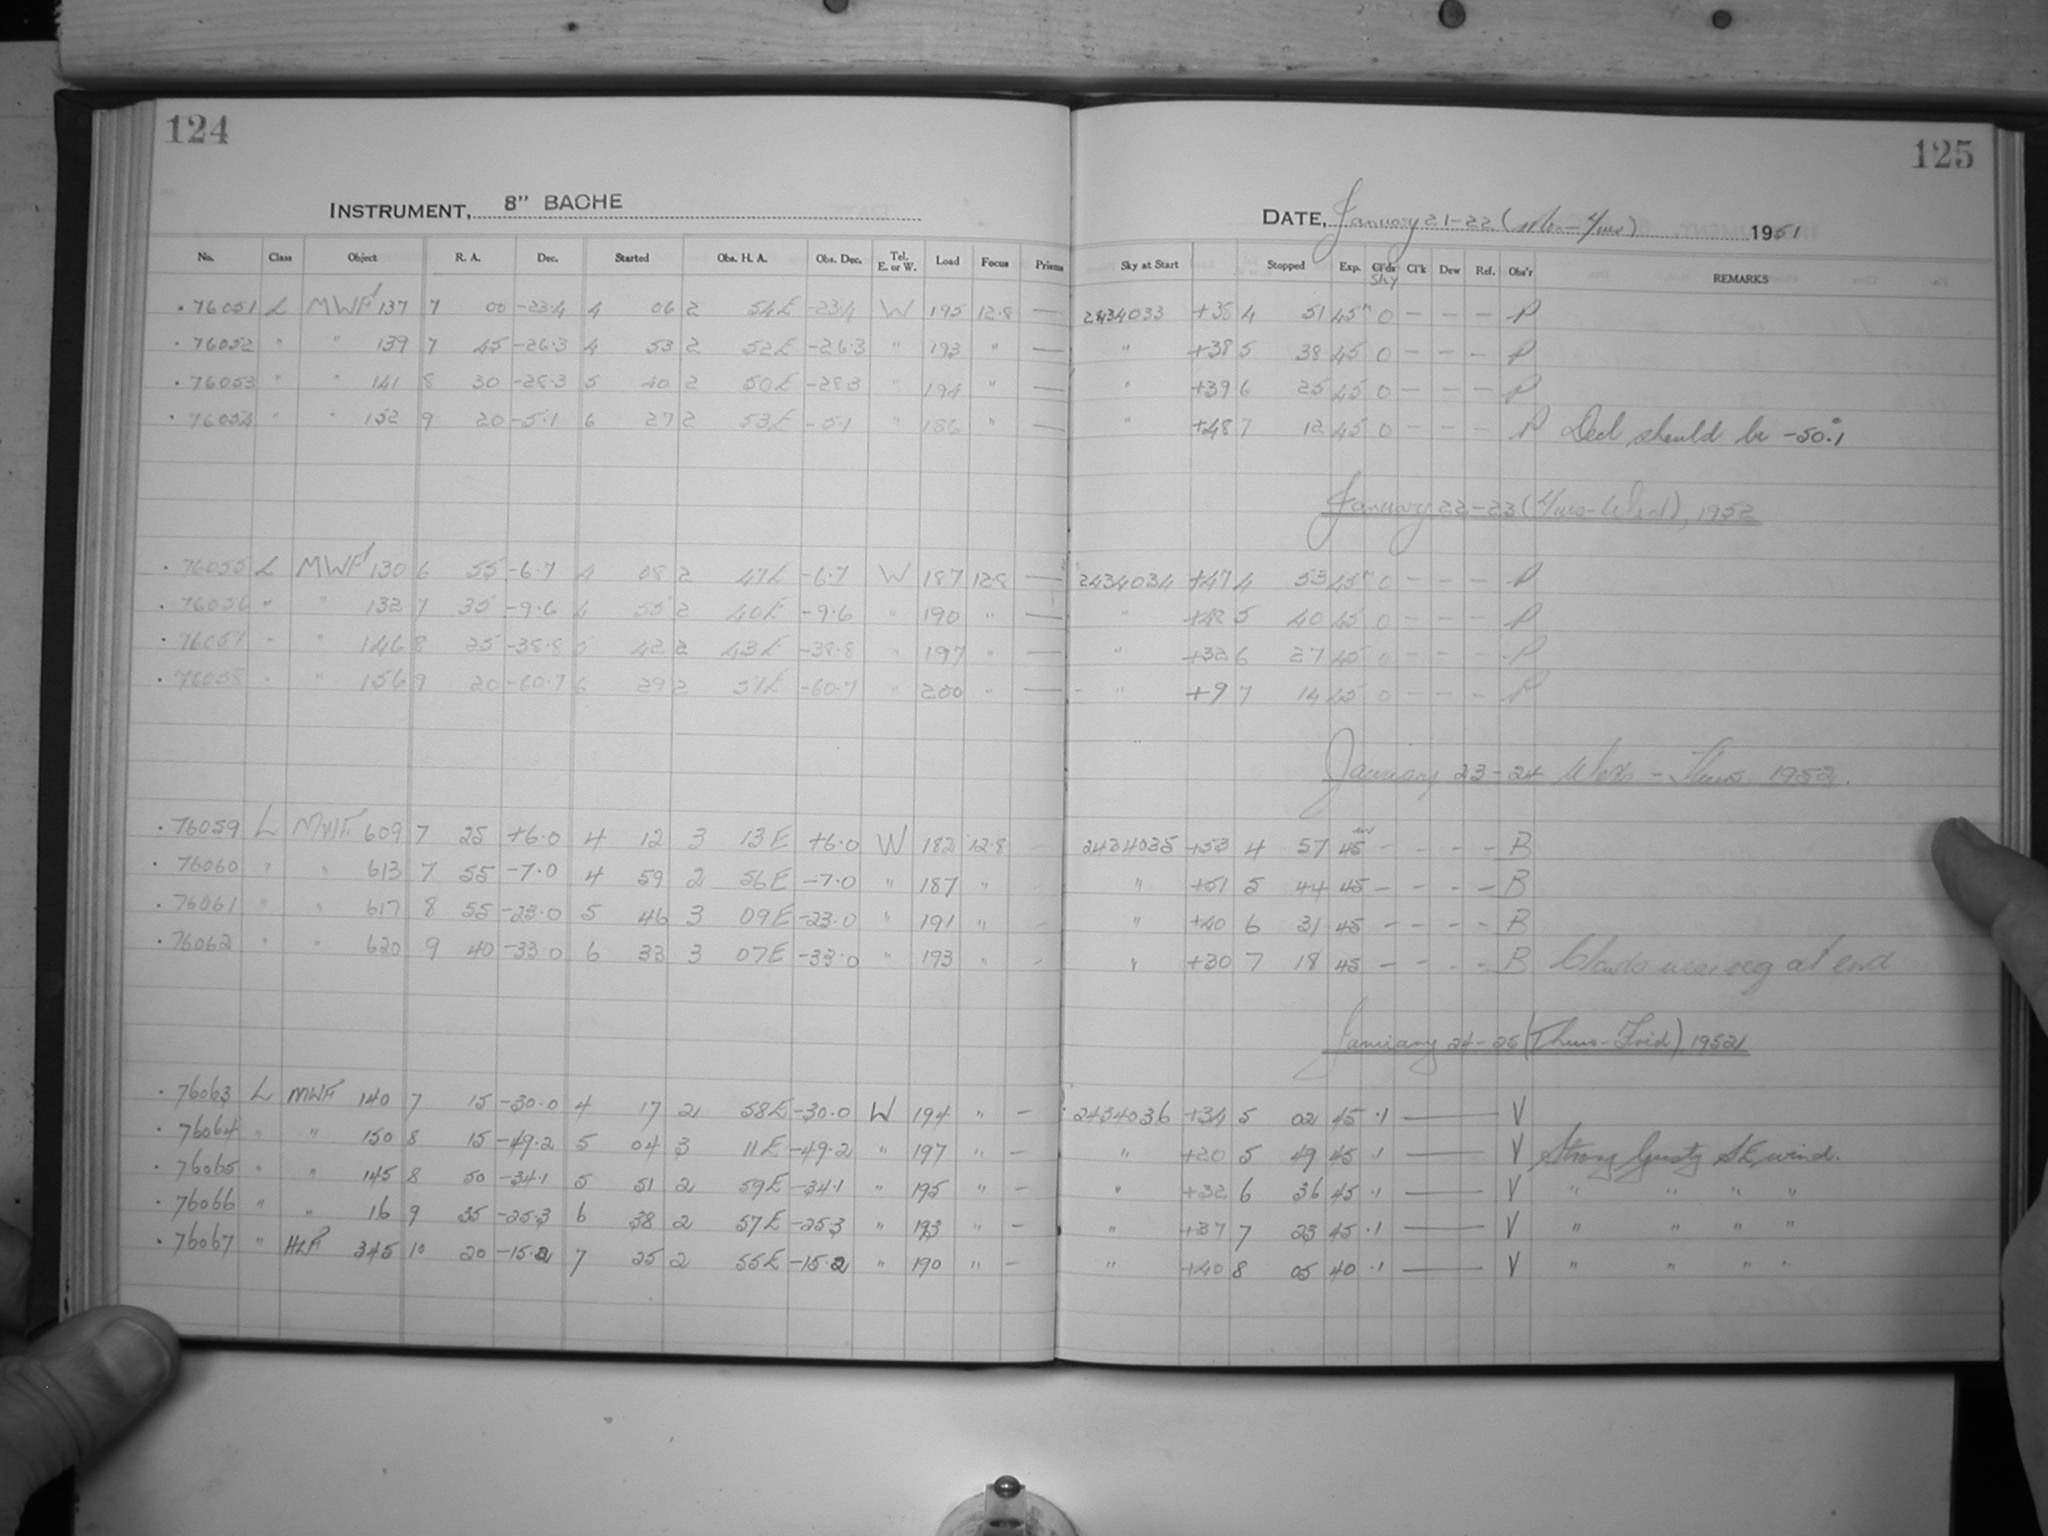 124
125
INSTRUMENT, 8" BACHE
DATE, January 21-22 (Mon-Tues) 1951
No. Class Object R. A. Dec. Started Obs. H. A. Obs. Dec. Tel. E. or W. Load Focus Prisms Sky at Start Stopped Exp. Cl'ds Sky Cl'k Dew Ref. Obs'r REMARKS
. 76051 L MWF 137 7 00 -23.4 4 06 2 54E -23.4 W 195 12.8 — 2434033 +38 4 51 45m 0 - - - P
. 76052 " " 139 7 45 -26.3 4 53 2 52E -26.3 " 193 " — " +38 5 38 45 0 - - - P
. 76053 " " 141 8 30 -28.3 5 40 2 50E -28.3 " 194 " — " +39 6 25 45 0 - - - P
. 76054 " " 152 9 20 -5.1 6 27 2 53E -5.1 " 186 " — " +48 7 12 45 0 - - - P Decl should be -50.°1
January 22-23 (Tues-Wed), 1952
. 76055 L MWF 130 6 55 -6.7 4 08 2 47E -6.7 W 187 12.8 — 2434034 +47 4 53 45m 0 - - - P
. 76056 " " 132 7 35 -9.6 4 55 2 40E -9.6 " 190 " — " +48 5 40 45 0 - - - P
. 76057 " " 146 8 25 -38.8 5 42 2 43E -38.8 " 197 " — " +32 6 27 45 0 - - - P
. 76058 " " 156 9 20 -60.7 6 29 2 51E -60.7 " 200 " — " +9 7 14 45 0 - - - P
January 23-24 Weds - Thurs, 1952.
. 76059 L MWF 609 7 25 +6.0 4 12 3 13E +6.0 W 182 12.8 - 2434035 +53 4 57 45m - - - - B
. 76060 " " 613 7 55 -7.0 4 59 2 56E -7.0 " 187 " - " +51 5 44 45 - - - - B
. 76061 " " 617 8 55 -23.0 5 46 3 09E -23.0 " 191 " - " +40 6 31 45 - - - - B
. 76062 " " 620 9 40 -33.0 6 33 3 07E -33.0 " 193 " - " +30 7 18 45 - - - - B Clouds nearing at end
January 24-25 (Thurs-Frid), 1952
. 76063 L MWF 140 7 15 -30.0 4 17 2 58E -30.0 W 194 " - 2434036 +34 5 02 45 .1 — V
. 76064 " " 150 8 15 -49.2 5 04 3 11E -49.2 " 197 " - " +20 5 49 45 .1 — V Strong Gusty SE wind.
. 76065 " " 145 8 50 -34.1 5 51 2 59E -34.1 " 195 " - " +32 6 36 45 .1 — V " " " "
. 76066 " " 16 9 35 -25.3 6 38 2 57E -25.3 " 193 " - " +37 7 23 45 .1 — V " " " "
. 76067 " HLF 345 10 20 -15.2 7 25 2 55E -15.2 " 190 " - " +40 8 05 40 .1 — V " " " "